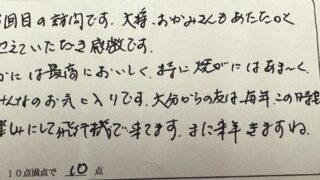 回目の訪問です。大将、おかみさんもあたたかく
えていただき感激です。
かには最高においしく、特に焼がにはあま～く、
みんなのお気に入りです。大分からの友は毎年、この時
みにして飛行機で来てます。また来年きますね。
10点満点で 10 点